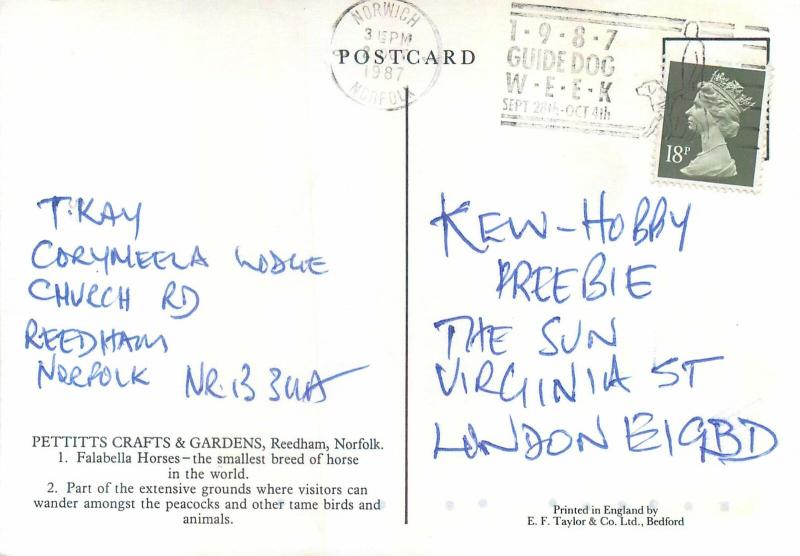 NORWICH
3 15PM
1987
NORFOLK
1-9-8-7
GUIDE DOG
W-E-E-K
SEPT 28th-OCT 4th
18P
POSTCARD
T. KAY
CORYMEELA LODGE
CHURCH RD
REEDHAM
NORFOLK NR13 3UA
PETTITTS CRAFTS & GARDENS, Reedham, Norfolk.
1. Falabella Horses—the smallest breed of horse
in the world.
2. Part of the extensive grounds where visitors can
wander amongst the peacocks and other tame birds and
animals.
KEW-HOBBY
FREEBIE
THE SUN
VIRGINIA ST
LONDON E1 9BD
Printed in England by
E. F. Taylor & Co. Ltd., Bedford